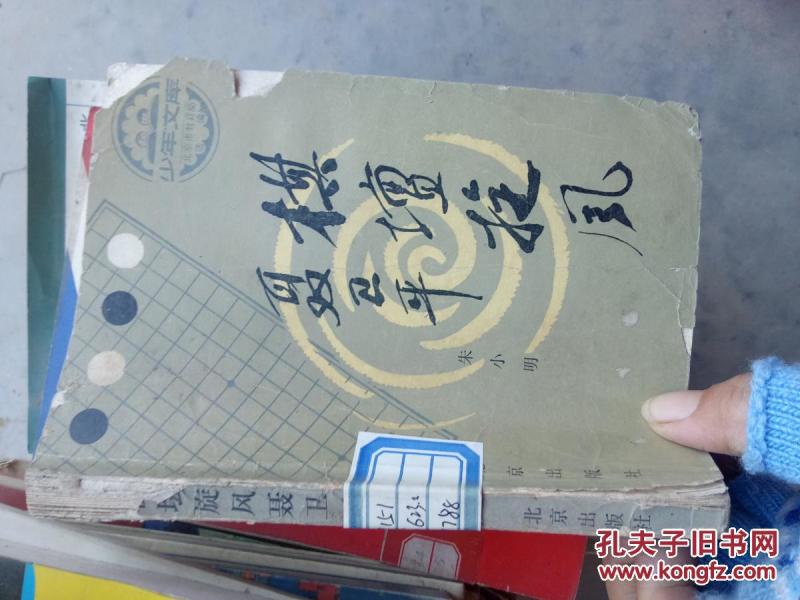 少年文库
棋壇旋风
聂卫平
朱小明
京出版社
旋风聂卫
151
788
北京出版社
孔夫子旧书网
www.kongfz.com